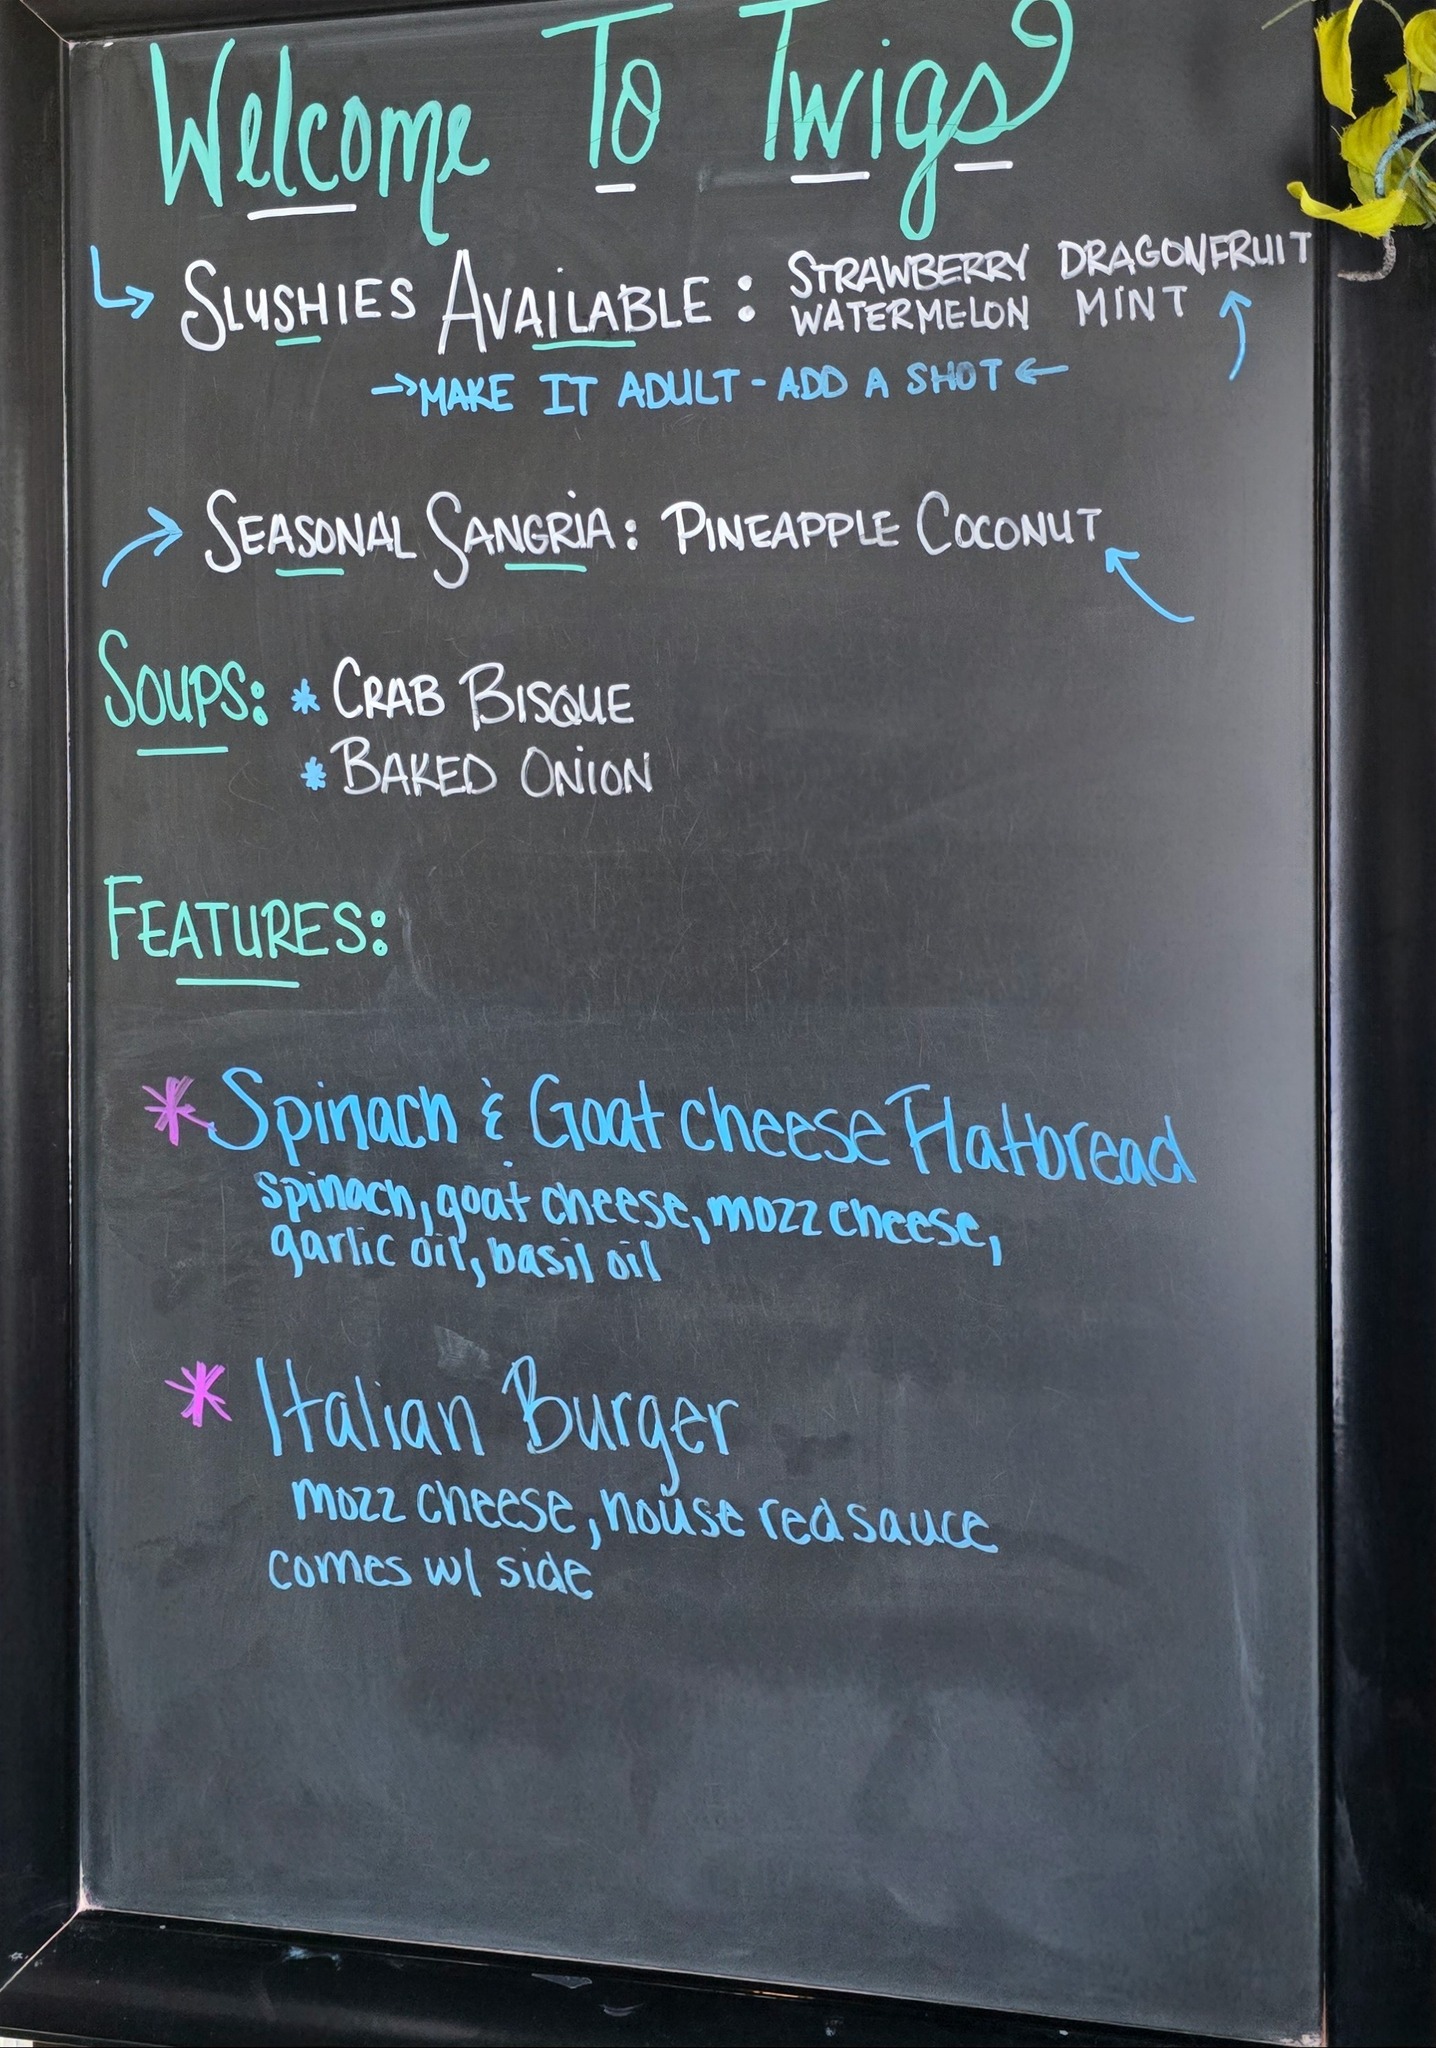 Welcome To Twigs
SLUSHIES AVAILABLE : STRAWBERRY DRAGONFRUIT
WATERMELON MINT
→MAKE IT ADULT - ADD A SHOT←
SEASONAL SANGRIA: PINEAPPLE COCONUT
SOUPS: * CRAB BISQUE
* BAKED ONION
FEATURES:
* Spinach & Goat cheese Flatbread
spinach, goat cheese, mozz cheese,
garlic oil, basil oil
* Italian Burger
mozz cheese, house red sauce
comes w/ side